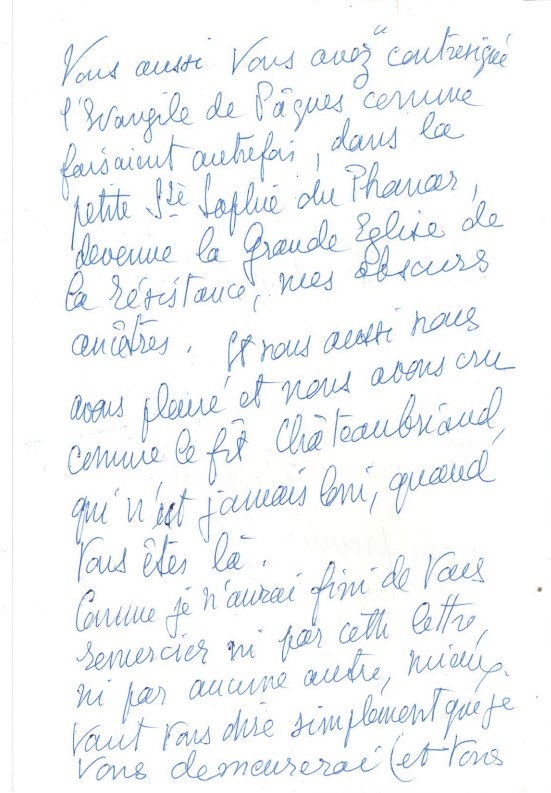 Vous aussi Vous avez "contresigné
l'Evangile de Pâques comme
faisaient autrefois, dans la
petite Ste Sophie du Phanar,
devenue la Grande Eglise de
la résistance, mes obscurs
ancêtres. Et nous aussi nous
avons pleuré et nous avons cru
comme le fit Châteaubriand,
qui n'est jamais loin, quand
Vous êtes là.
Comme je n'aurai fini de Vous
remercier ni par cette lettre,
ni par aucune autre, mieux
vaut Vous dire simplement que je
Vous demeurerai (et Vous